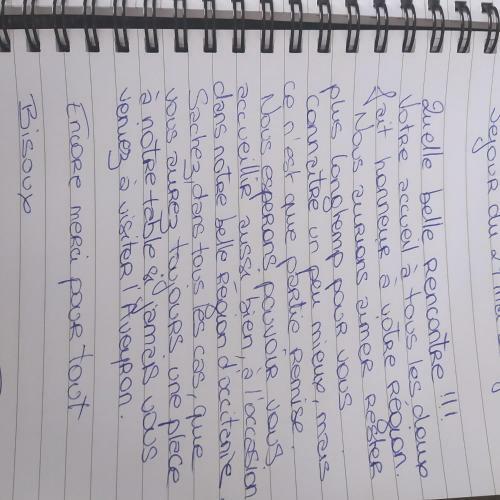 Séjour du 2 mai
Quelle belle rencontre !!!
Votre accueil à tous les deux
fait honneur à votre région.
Nous aurions aimer rester
plus longtemp pour vous
connaître un peu mieux, mais
ce n'est que partie remise.
Nous esperons pouvoir vous
accueillir aussi bien, à l'occasion
dans notre belle région d'occitanie.
Sachez, dans tous les cas, que
vous aurez toujours une place
à notre table si jamais vous
veniez à visiter l'Aveyron.
Encore merci pour tout
Bisoux